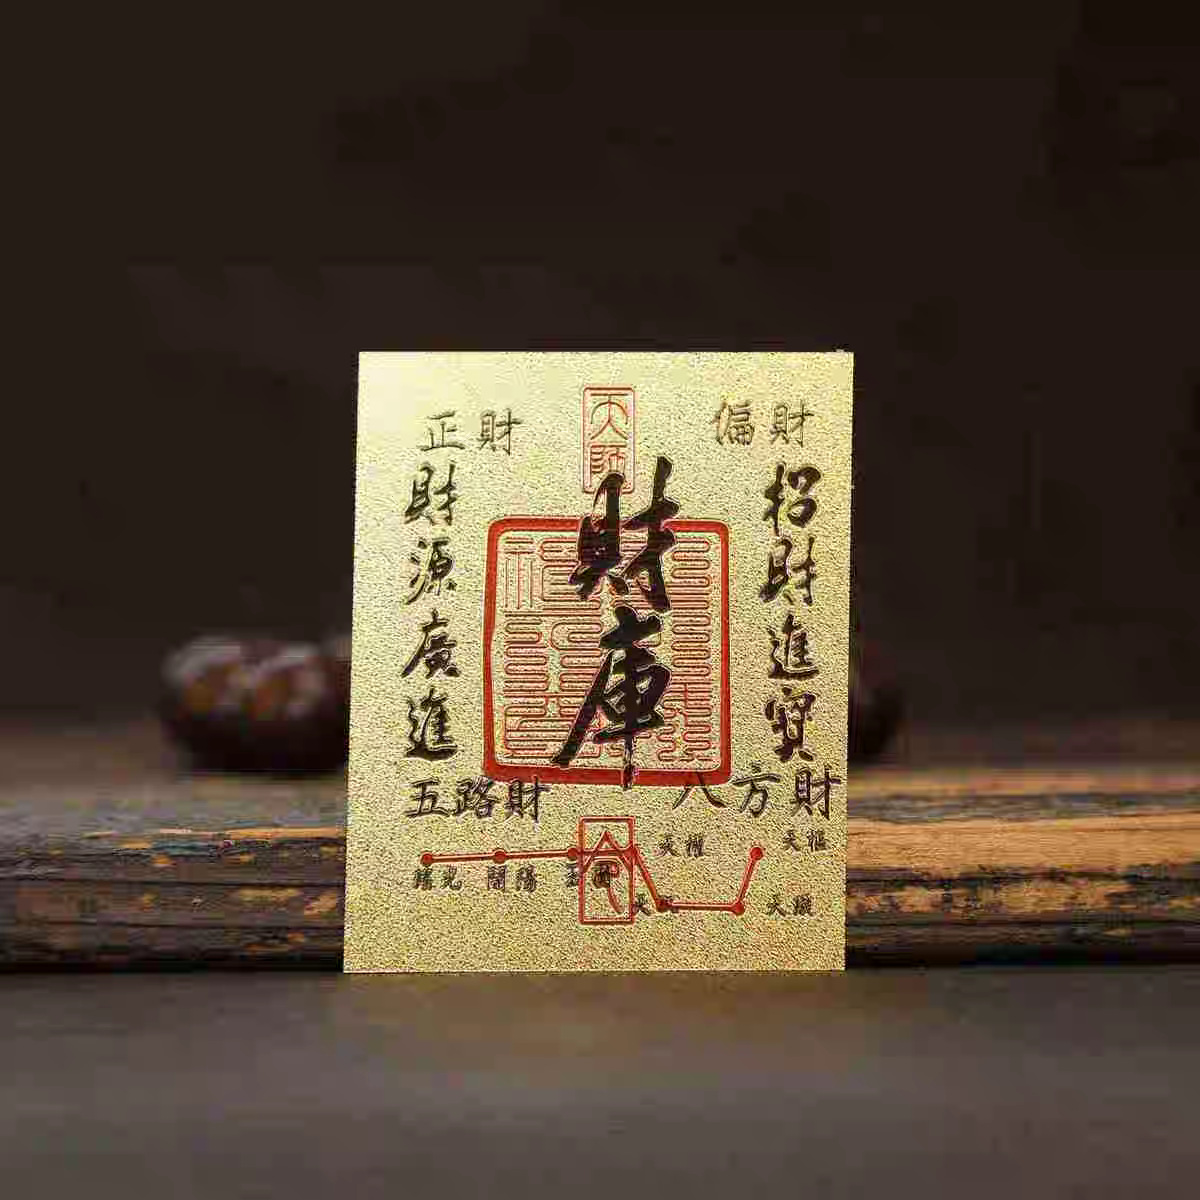 天師
正財
偏財
財庫
招財進寶
財源廣進
五路財
八方財
命
天權
天樞
開陽
天璇